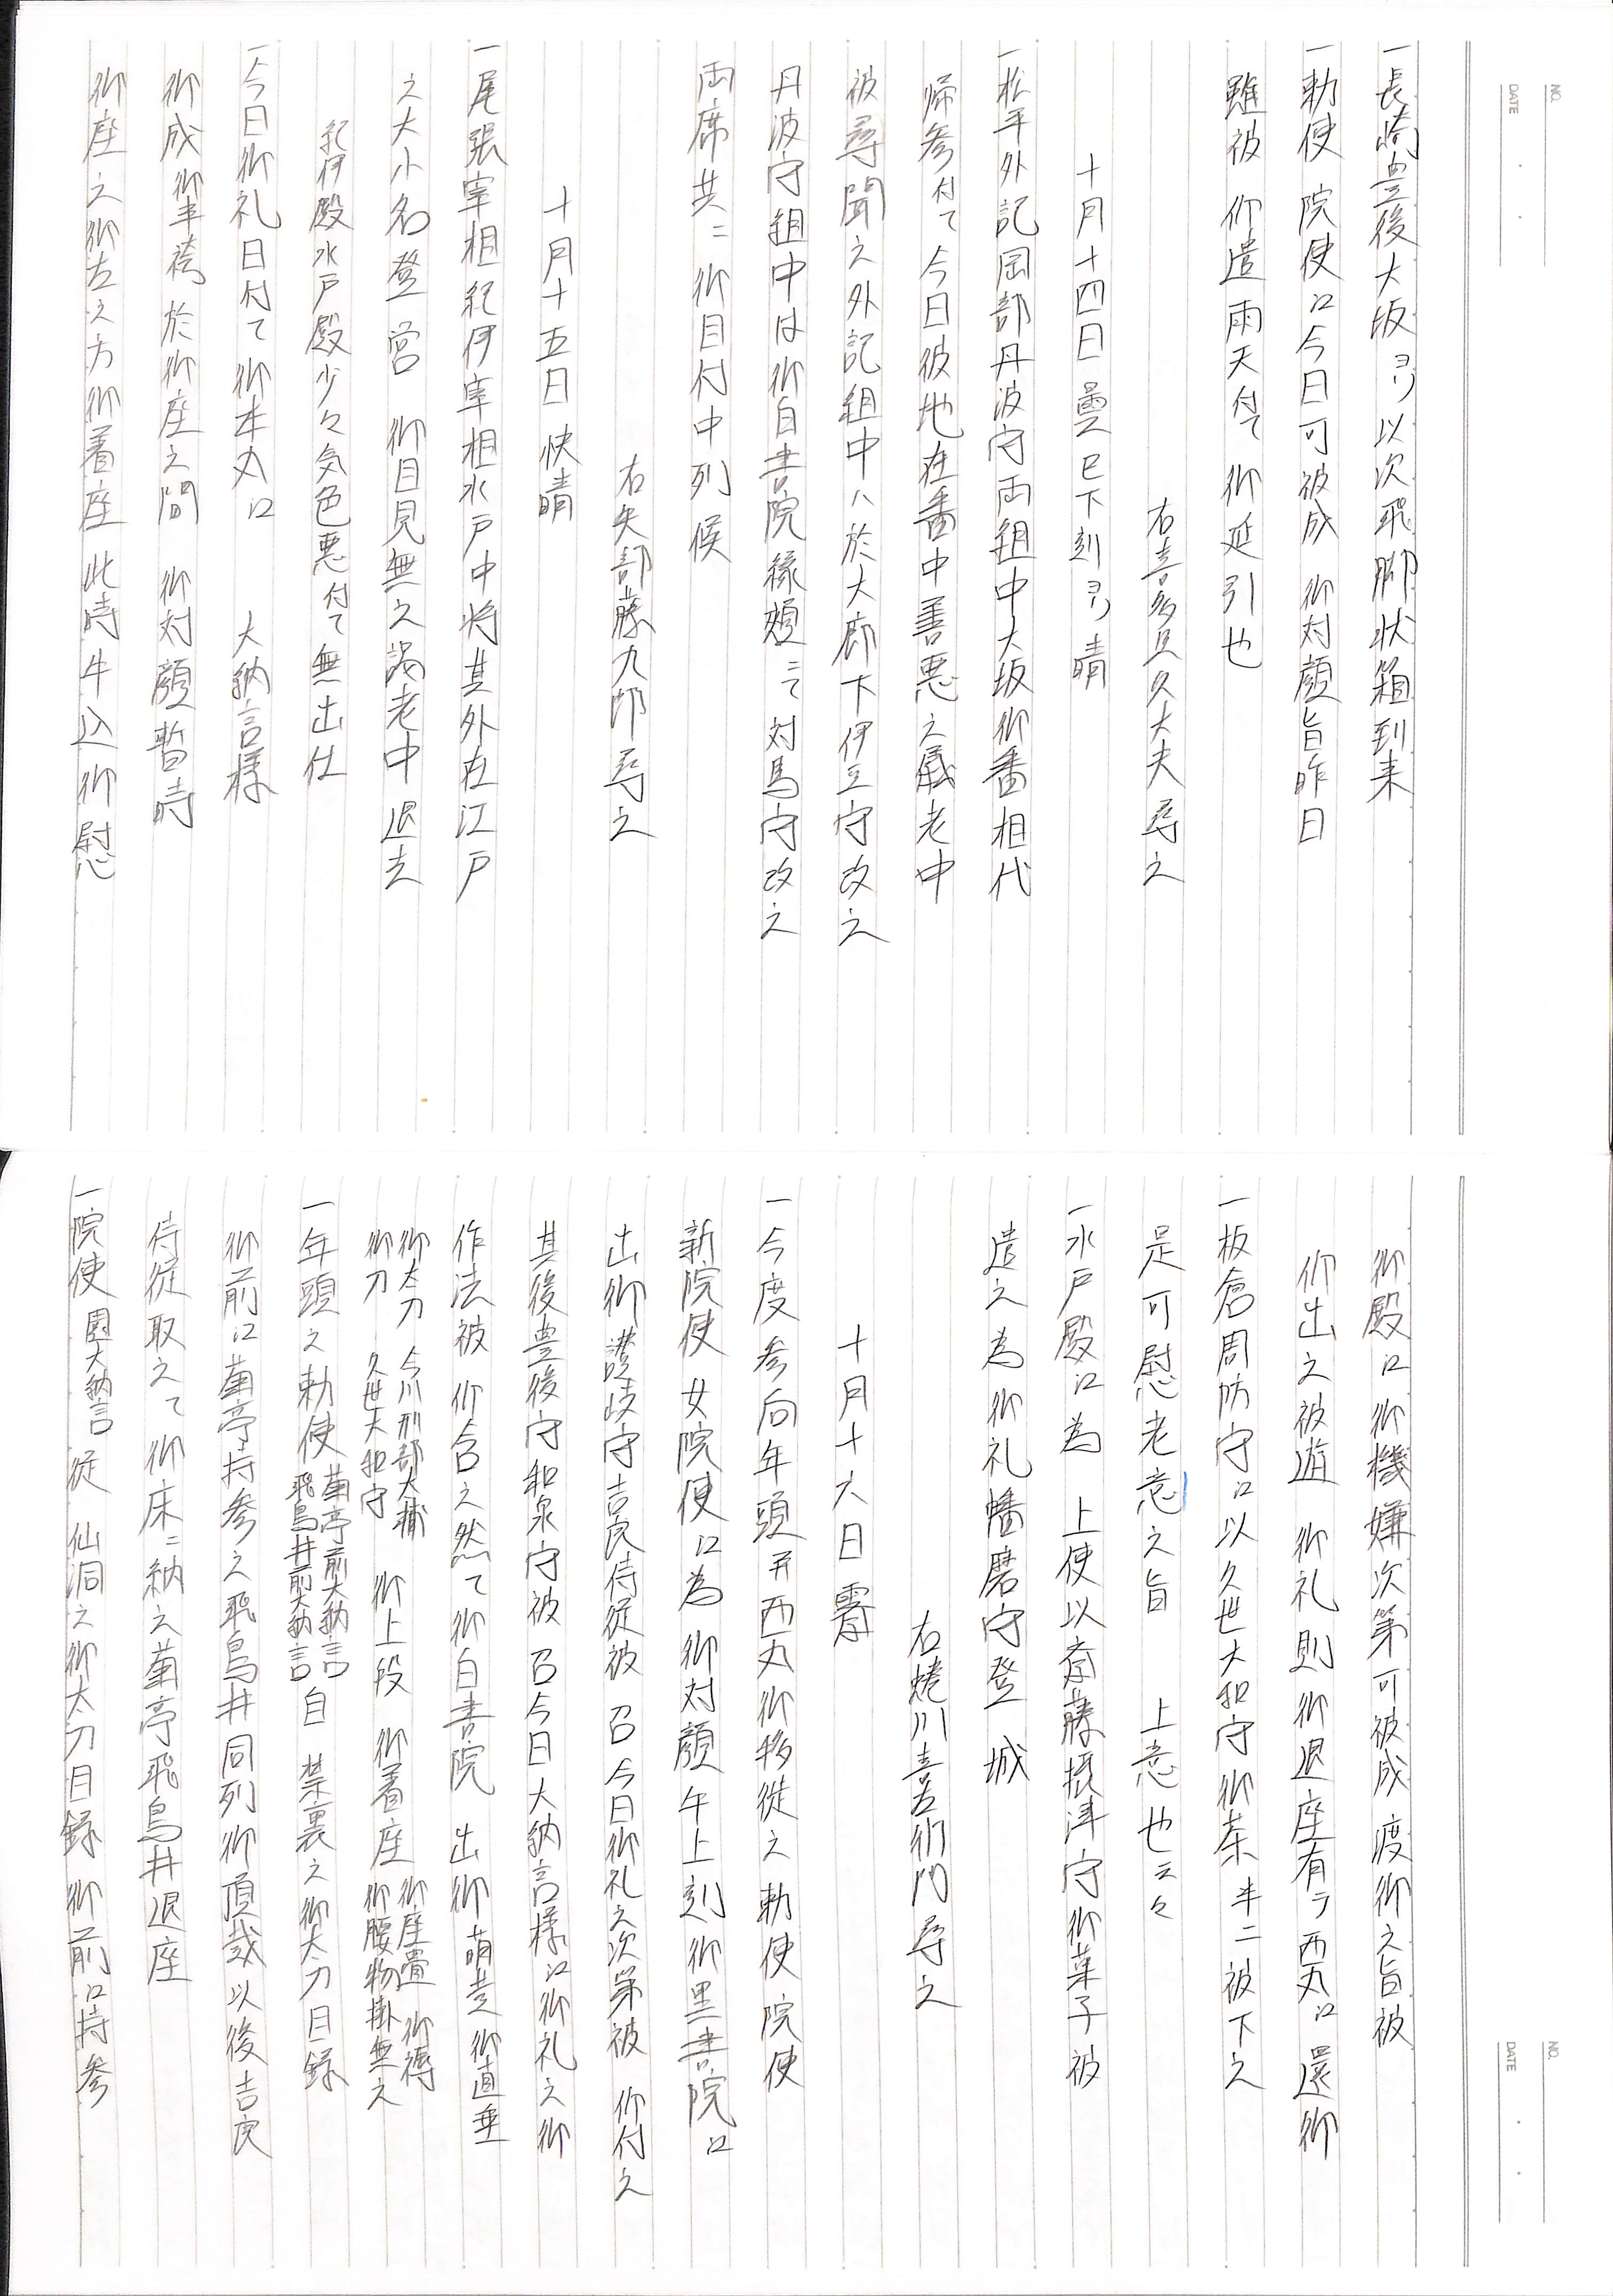 NO.
DATE
一長崎豊後大坂ゟ以次飛脚状箱到来
一勅使 院使江今日可被成 御対顔旨昨日
雖被 仰遣雨天付て 御延引也
右喜多見久大夫尋之
十月十四日曇巳下刻ゟ晴
一松平外記岡部丹波守両組中大坂御番相代
帰参付て今日彼地在番中善悪之儀老中
被尋聞之外記組中ハ於大廊下伊豆守改之
丹波守組中は御白書院縁頬ニて対馬守改之
両席共ニ御目付中列候
右矢部藤九郎尋之
十月十五日快晴
一尾張宰相紀伊宰相水戸中将其外在江戸
之大小名登 営 御目見無之謁老中退去
紀伊殿水戸殿少々気色悪付て無出仕
一今日御礼日付て御本丸江 大納言様
御成御半袴於御座之間 御対顔暫時
御座之御左之方御着座此時牛込御慰
NO.
DATE
御殿江御機嫌次第可被成 渡御之旨被
仰出之被遊 御礼則御退座有テ西丸江還御
一板倉周防守江以久世大和守御茶半ニ被下之
是可慰老意之旨 上意也云々
一水戸殿江為 上使以斎藤摂津守御菓子被
遣之為御礼幡磨守登 城
右蜷川喜左衛門尋之
十月十六日霽
一今度参向年頭并西丸御移徙之勅使院使
新院使 女院使江為 御対顔午上刻御黒書院江
出御讃岐守吉良侍従被 召今日御礼之次第被 仰付之
其後豊後守和泉守被 召今日大納言様江御礼之御
作法被 仰含之然て御白書院 出御萌黄御直垂
御太刀 今川刑部大輔
御刀 久世大和守 御上段 御着座 御座畳 御褥
御腰物掛無之
一年頭之勅使 菊亭前大納言
飛鳥井前大納言 自 禁裏之御太刀目録
御前江菊亭持参之飛鳥井同列御頂戴以後吉良
侍従取之て御床ニ納之菊亭飛鳥井退座
一院使 園大納言 従 仙洞之御太刀目録 御前江持参